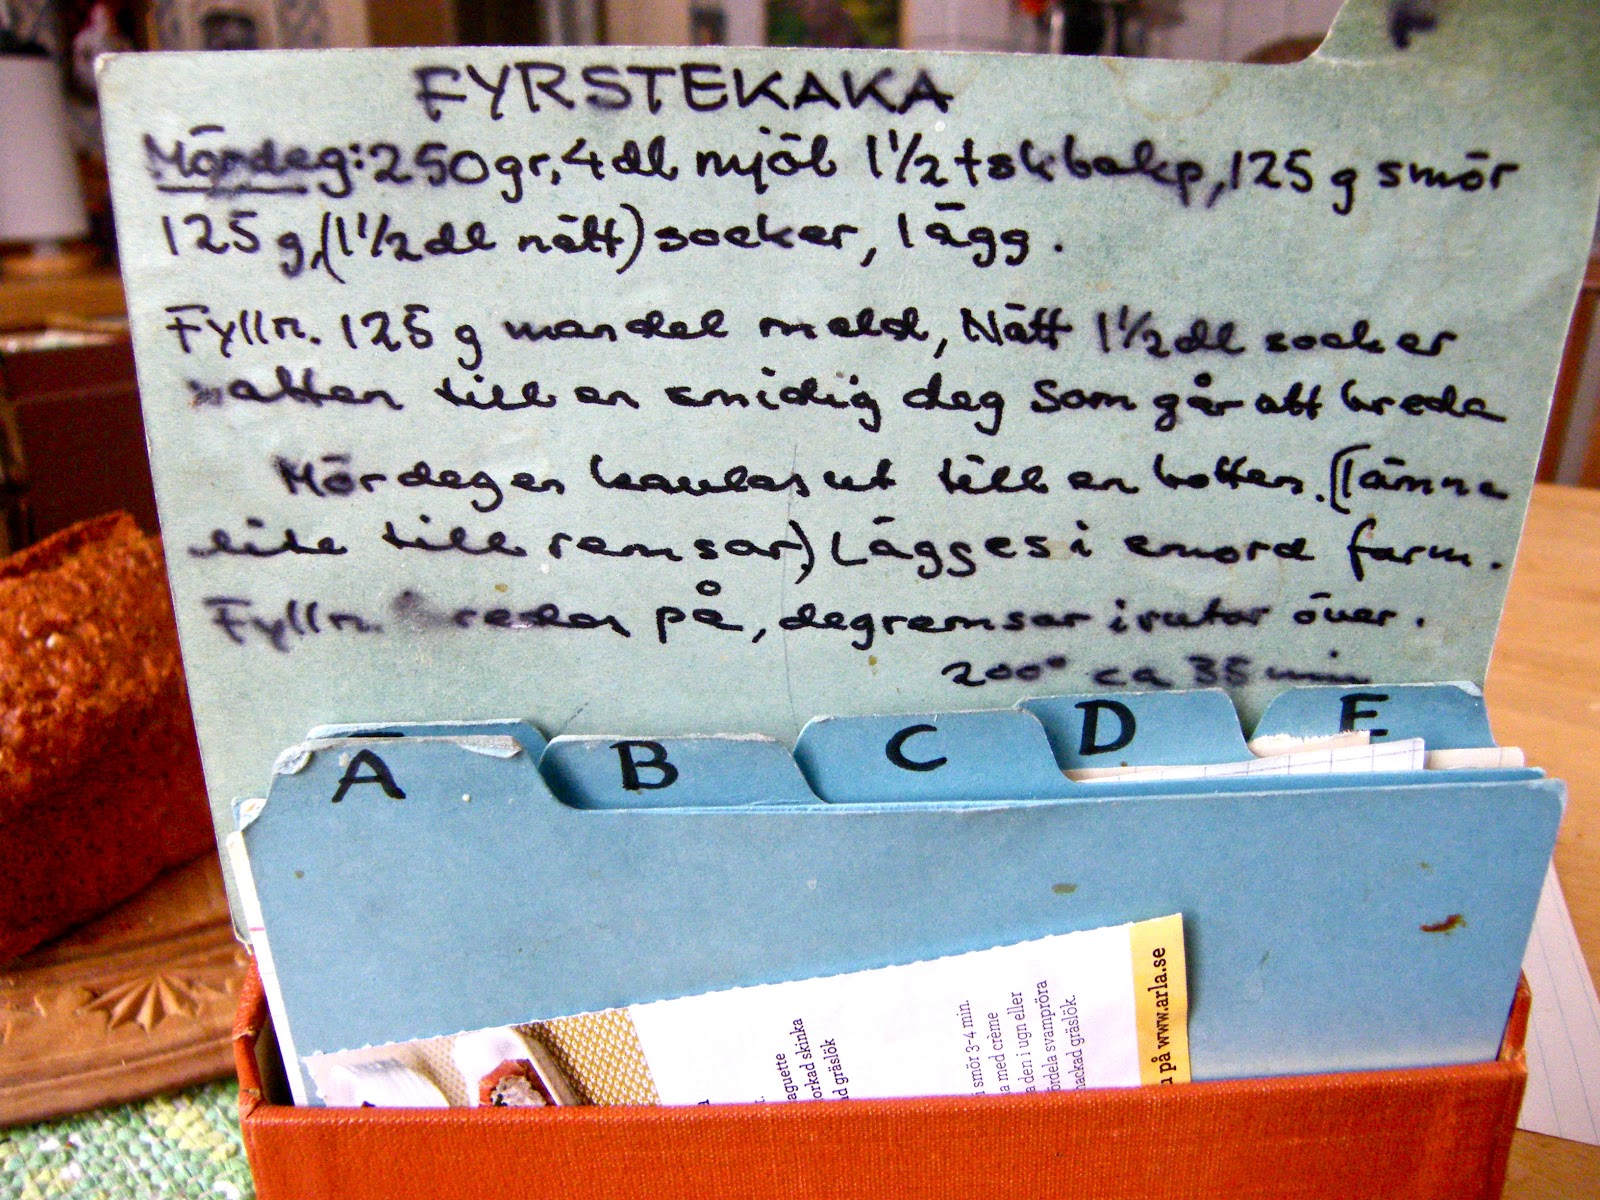 FYRSTEKAKA
Mördeg: 250 gr, 4 dl mjöl 1 1/2 tsk bakp, 125 g smör
125 g, (1 1/2 dl nätt) socker, 1 ägg.
Fylln. 125 g mandel mald, Nätt 1 1/2 dl socker
vatten till en smidig deg som går att breda
Mördegen kavlas ut till en botten. (Lämna
lite till remsar) Lägges i smord form.
Fylln. bredes på, degremsor i rutor över.
200° ca 35 min
A
B
C
D
E
aguette
orkad skinka
d gräslök
i smör 3-4 min.
a med crème
a den i ugn eller
ördela svampröra
hackad gräslök.
på www.arla.se